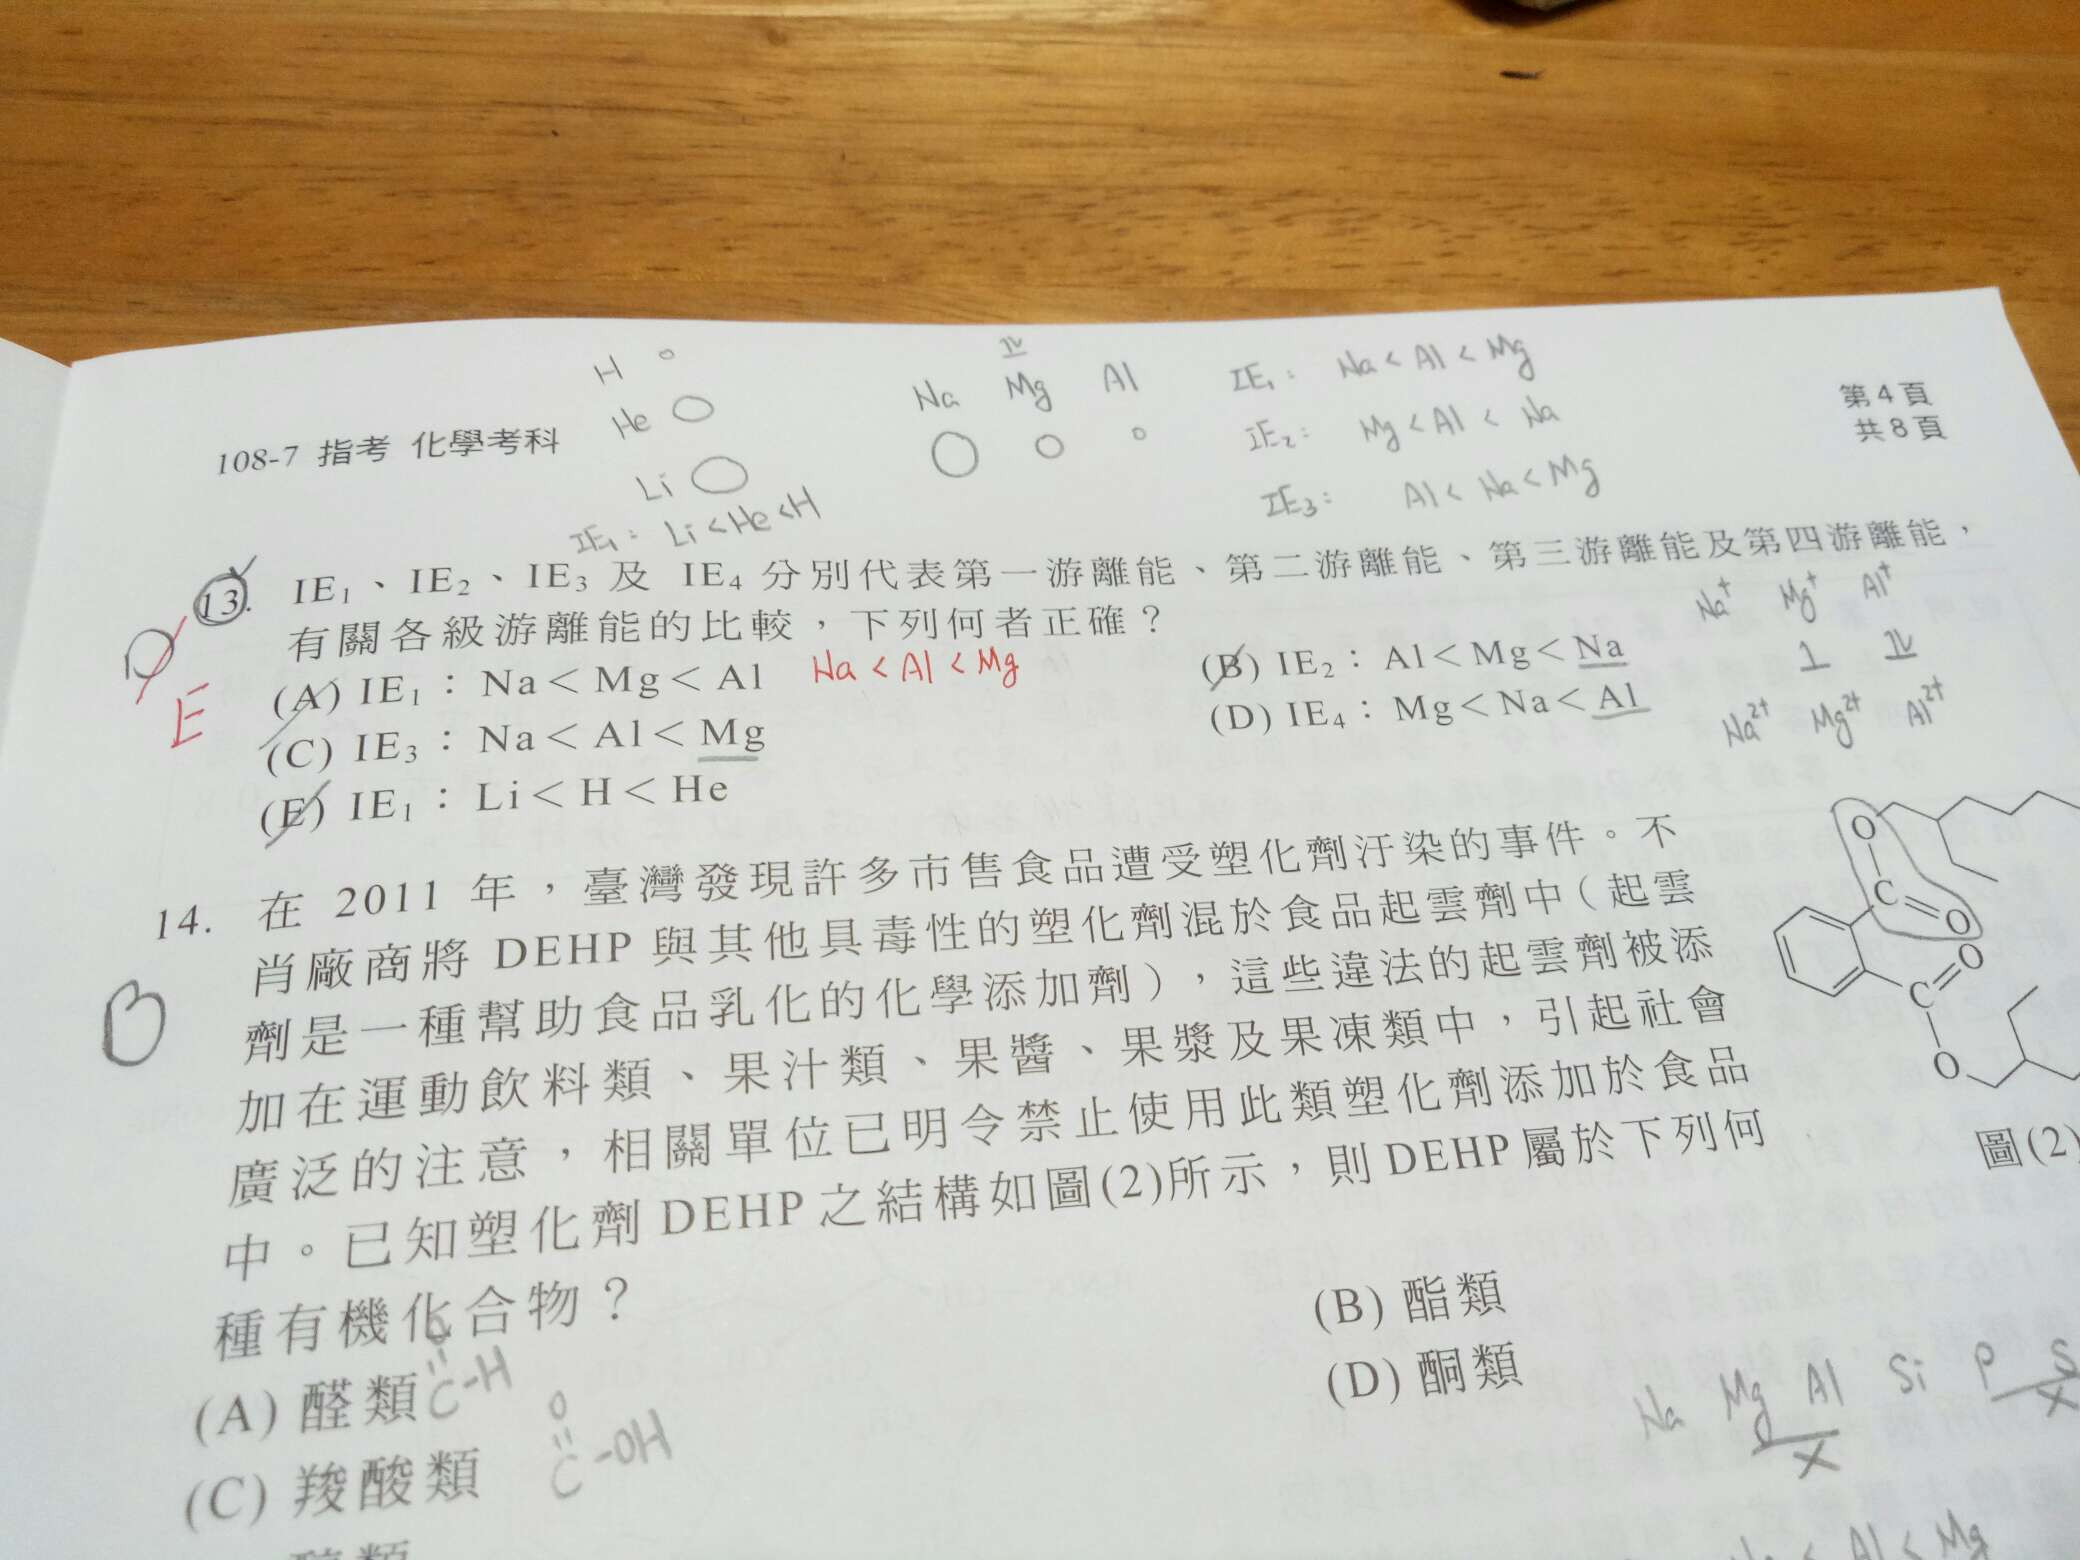 H
He
Li
IE₁: Li<He<H
Na Mg Al
IE₁: Na<Al<Mg
IE₂: Mg<Al<Na
IE₃: Al<Na<Mg
108-7 指考 化學考科
第4頁
共8頁
13. IE₁、IE₂、IE₃ 及 IE₄ 分別代表第一游離能、第二游離能、第三游離能及第四游離能，
有關各級游離能的比較，下列何者正確？
D
E
(A) IE₁：Na<Mg<Al Na<Al<Mg
(B) IE₂：Al<Mg<Na
(C) IE₃：Na<Al<Mg
(D) IE₄：Mg<Na<Al
(E) IE₁：Li<H<He
Na⁺ Mg⁺ Al⁺
Na²⁺ Mg²⁺ Al²⁺
14. 在 2011 年，臺灣發現許多市售食品遭受塑化劑汙染的事件。不
肖廠商將 DEHP 與其他具毒性的塑化劑混於食品起雲劑中（起雲
劑是一種幫助食品乳化的化學添加劑），這些違法的起雲劑被添
加在運動飲料類、果汁類、果醬、果漿及果凍類中，引起社會
廣泛的注意，相關單位已明令禁止使用此類塑化劑添加於食品
中。已知塑化劑 DEHP 之結構如圖(2)所示，則 DEHP 屬於下列何
種有機化合物？
B
O
C
O
O
C
O
圖(2)
(A) 醛類
O
C-H
(B) 酯類
(C) 羧酸類
O
C-OH
(D) 酮類
Na Mg Al Si P S
X X
Al<Mg